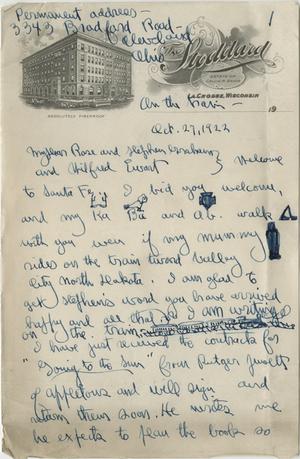 Permanent address—
3343 Bradford Road—
Cleveland
Ohio
1
The Stoddard
ABSOLUTELY FIREPROOF
LA CROSSE, WISCONSIN
On the train —
19
Oct. 27, 1922
My dear Rose and Stephen Graham
and Wilfred Ewart } Welcome
to Santa Fe. I bid you welcome,
and my Ka Ba and ab. walk
with you even if my mummy
rides on the train toward Valley
City North Dakota. I am glad to
get Stephen's word you have arrived
happy and all that. I am writing
on the train.
I have just received the contracts for
"Going to the Sun" from Rutger Jewett
of Appletons and will sign and
return them soon. He writes me
he expects to plan the book so